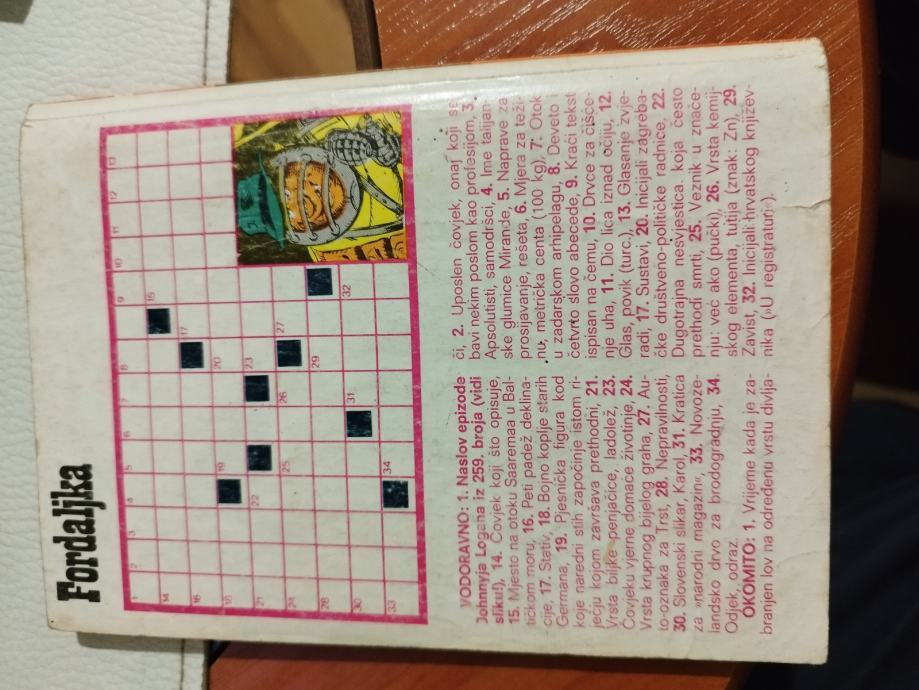 Fordaljka
1
2
3
4
5
6
7
8
9
10
11
12
13
14
15
16
17
18
19
20
21
22
23
24
25
26
27
28
29
30
31
32
33
34
VODORAVNO: 1. Naslov epizode
Johnnyja Logana iz 259. broja (vidi
sliku!), 14. Čovjek koji što opisuje,
15. Mjesto na otoku Saaremaa u Bal-
tičkom moru, 16. Peti padež deklina-
cije, 17. Stativ, 18. Bojno koplje starih
Germana, 19. Pjesnička figura kod
koje naredni stih započinje istom ri-
ječju kojom završava prethodni, 21.
Vrsta biljke penjačice, ladolež, 23.
Čovjeku vjerne domaće životinje, 24.
Vrsta krupnog bijelog graha, 27. Au-
to-oznaka za Trst, 28. Nepravilnosti,
30. Slovenski slikar, Karol, 31. Kratica
za »narodni magazin«, 33. Novoze-
landsko drvo za brodogradnju, 34.
Odjek, odraz.
OKOMITO: 1. Vrijeme kada je za-
branjen lov na određenu vrstu divlja-
či, 2. Uposlen čovjek, onaj koji se
bavi nekim poslom kao profesijom, 3.
Apsolutisti, samodršci, 4. Ime talijan-
ske glumice Mirande, 5. Naprave za
prosijavanje, rešeta, 6. Mjera za teži-
nu, metrička centa (100 kg), 7. Otok
u zadarskom arhipelagu, 8. Deveto i
četvrto slovo abecede, 9. Kraći tekst
ispisan na čemu, 10. Drvce za čišće-
nje uha, 11. Dio lica iznad očiju, 12.
Glas, povik (turc.), 13. Glasanje zvje-
radi, 17. Sustavi, 20. Inicijali zagreba-
čke društveno-političke radnice, 22.
Dugotrajna nesvjestica koja često
prethodi smrti, 25. Veznik u znače-
nju: već ako (pučki), 26. Vrsta kemij-
skog elementa, tutija (znak: Zn), 29.
Zavist, 32. Inicijali hrvatskog književ-
nika (»U registraturi«).